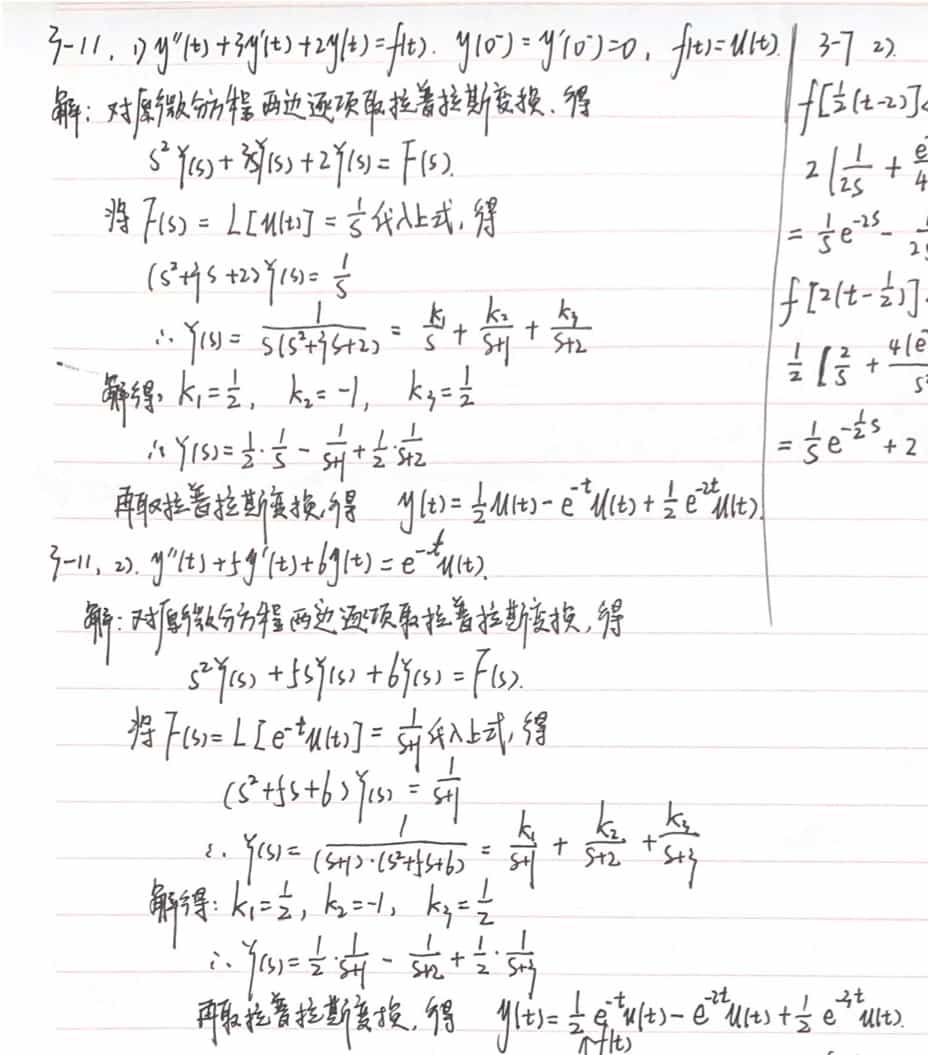 3-11, 1) y''(t)+3y'(t)+2y(t)=f(t). y(0⁻)=y'(0⁻)=0, f(t)=u(t).
解: 对原微分方程两边逐项取拉普拉斯变换, 得
s²Y(s)+3sY(s)+2Y(s)=F(s).
将F(s)=L[u(t)]=1/s代入上式, 得
(s²+3s+2)Y(s)=1/s
∴Y(s)=1/(s(s²+3s+2))=k₁/s+k₂/(s+1)+k₃/(s+2)
解得, k₁=1/2, k₂=-1, k₃=1/2
∴Y(s)=1/2·1/s-1/(s+1)+1/2·1/(s+2)
再取拉普拉斯变换, 得 y(t)=1/2u(t)-e^{-t}u(t)+1/2e^{-2t}u(t).
3-11, 2). y''(t)+5y'(t)+6y(t)=e^{-t}u(t).
解: 对原微分方程两边逐项取拉普拉斯变换, 得
s²Y(s)+5sY(s)+6Y(s)=F(s).
将F(s)=L[e^{-t}u(t)]=1/(s+1)代入上式, 得
(s²+5s+6)Y(s)=1/(s+1)
∴Y(s)=1/((s+1)·(s²+5s+6))=k₁/(s+1)+k₂/(s+2)+k₃/(s+3)
解得: k₁=1/2, k₂=-1, k₃=1/2
∴Y(s)=1/2·1/(s+1)-1/(s+2)+1/2·1/(s+3)
再取拉普拉斯变换, 得 y(t)=1/2e^{-t}u(t)-e^{-2t}u(t)+1/2e^{-3t}u(t).
f(t)
3-7 2).
f[1/2(t-2)]
2[1/(2s)+
=1/s e^{-2s}-
f[2(t-1/2)]
1/2[2/s+
=1/s e^{-1/2s}+2